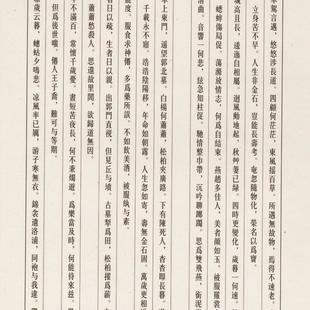 車駕言邁，悠悠涉長道。四顧何茫茫，東風搖百草。所遇無故物，焉得不速老。
，立身苦不早。人生非金石，豈能長壽考。奄忽隨物化，榮名以爲寶。
城高且長，逶迤自相屬。迴風動地起，秋艸萋已綠。四時更變化，歲暮一何速。
，蟋蟀傷局促。蕩滌放情志，何爲自結束。燕趙多佳人，美者顔如玉。被服羅裳
清曲。音響一何悲，弦急知柱促。馳情整巾帶，沉吟聊躑躅。思爲雙飛燕，銜泥
車上東門，遥望郭北墓。白楊何蕭蕭，松柏夾廣路。下有陳死人，杳杳卽長暮。
千載永不寤。浩浩陰陽移，年命如朝露。人生忽如寄，壽無金石固。萬歲更相
度。服食求神僊，多爲藥所誤。不如飲美酒，被服紈與素。
者日以疏，生者日以親。出郭門直視，但見丘與墳。古墓犁爲田，松柏摧爲薪。
蕭愁殺人。思還故里閭，欲歸道無因。
不滿百，常懷千歲憂。晝短苦夜長，何不秉燭遊。爲樂當及時，何能待來茲。
但爲後世嗤。僊人王子喬，難可與等期。
歲云暮，螻蛄夕鳴悲。涼風率已厲，游子寒無衣。錦衾遺洛浦，同袍與我違。